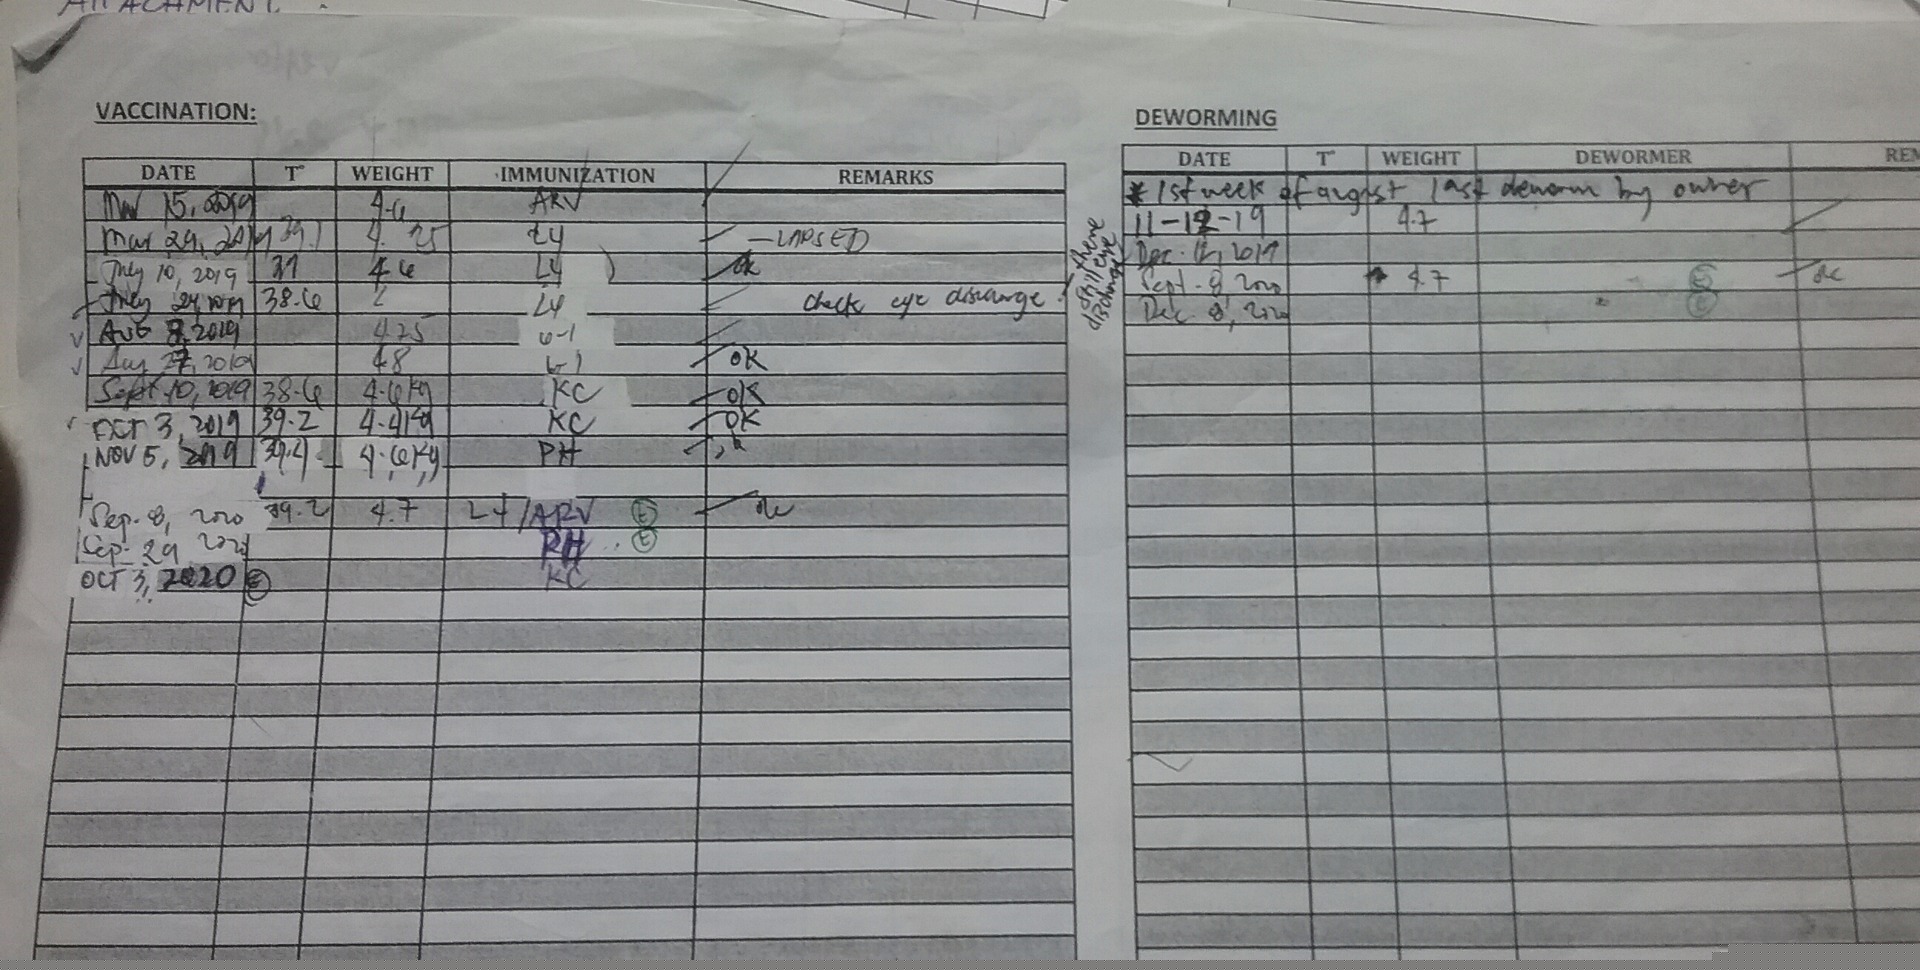 ATTACHMENT.
VACCINATION:
DATE T° WEIGHT IMMUNIZATION REMARKS
15, 2019 4.6 ARV
Mar 29, 2019 39.1 4. 25 L4 - LAPSED
July 10, 2019 37 4.6 L4 ok
July 24, 38.6 L4 check eye discharge
still there eye discharge
AUG 8, 2019 4.25 6-1
Aug 27, 2019 4.8 6-1 OK
Sept. 10, 2019 38.6 4.6kg KC OK
OCT 3, 2019 39.2 4.4kg KC OK
NOV 5, 2019 39.4 4.6kg PH
Sep. 8, 2020 39.2 4.7 L4/ARV E ok
Sep. 29 2020 PH E
OCT 3, 2020 E KC
DEWORMING
DATE T° WEIGHT DEWORMER REM
* 1st week of august last deworm by owner
11-12-19 4.7
Dec. 12, 2019
Sept. 8, 2020 4.7 E ok
Dec. 8, 2020 E